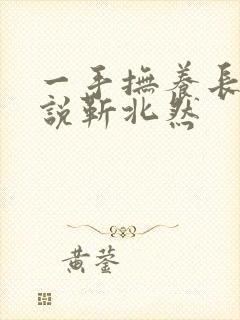 一手撫養長
說靳北然
黄蓥